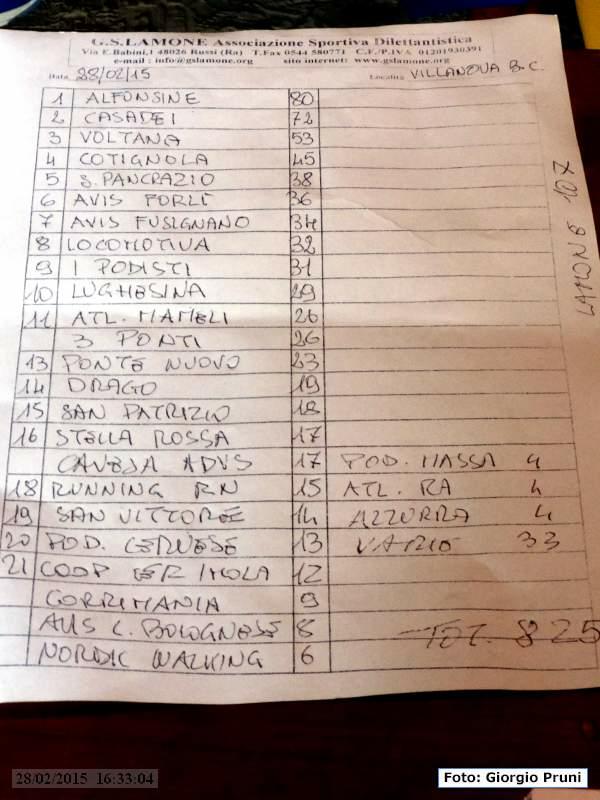 G.S.LAMONE Associazione Sportiva Dilettantistica
Via E.Babini,1 48026 Russi (Ra) T.Fax 0544 580771 C.F./P.IVA 01201930391
e-mail : info@gslamone.org sito internet: www.gslamone.org
Data 28/02/15 Località VILLANOVA B.C.
1 ALFONSINE 80
2 CASADEI 72
3 VOLTANA 53
4 COTIGNOLA 45
5 S.PANCRAZIO 38
6 AVIS FORLÌ 36
7 AVIS FUSIGNANO 34
8 LOCOMOTIVA 32
9 I PODISTI 31
10 LUGHESINA 29
11 ATL. MAMELI 26
3 PONTI 26
13 PONTE NUOVO 23
14 DRAGO 19
15 SAN PATRIZIO 18
16 STELLA ROSSA 17
CAVEJA ADVS 17 POD. MASSA 4
18 RUNNING RN 15 ATL. RA 4
19 SAN VITTORE 14 AZZURRA 4
20 POD. CERVESE 13 VARIE 33
21 COOP CER IMOLA 12
CORRIMANIA 9
AUIS C. BOLOGNESE 8 TOT. 825
NORDIC WALKING 6
LAMONE 107
28/02/2015 16:33:04
Foto: Giorgio Pruni